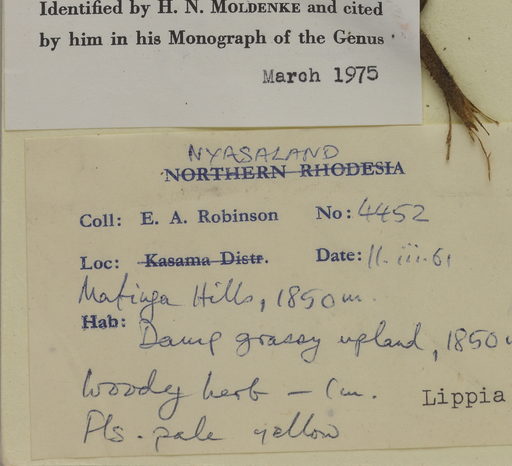 Identified by H. N. MOLDENKE and cited
by him in his Monograph of the Genus
March 1975
NYASALAND
NORTHERN RHODESIA
Coll: E. A. Robinson No: 4452
Loc: Kasama Distr. Date: 11.iii.61
Mafinga Hills, 1850 m.
Hab: Damp grassy upland, 1850
Woody herb – 1m.
Fls. pale yellow
Lippia